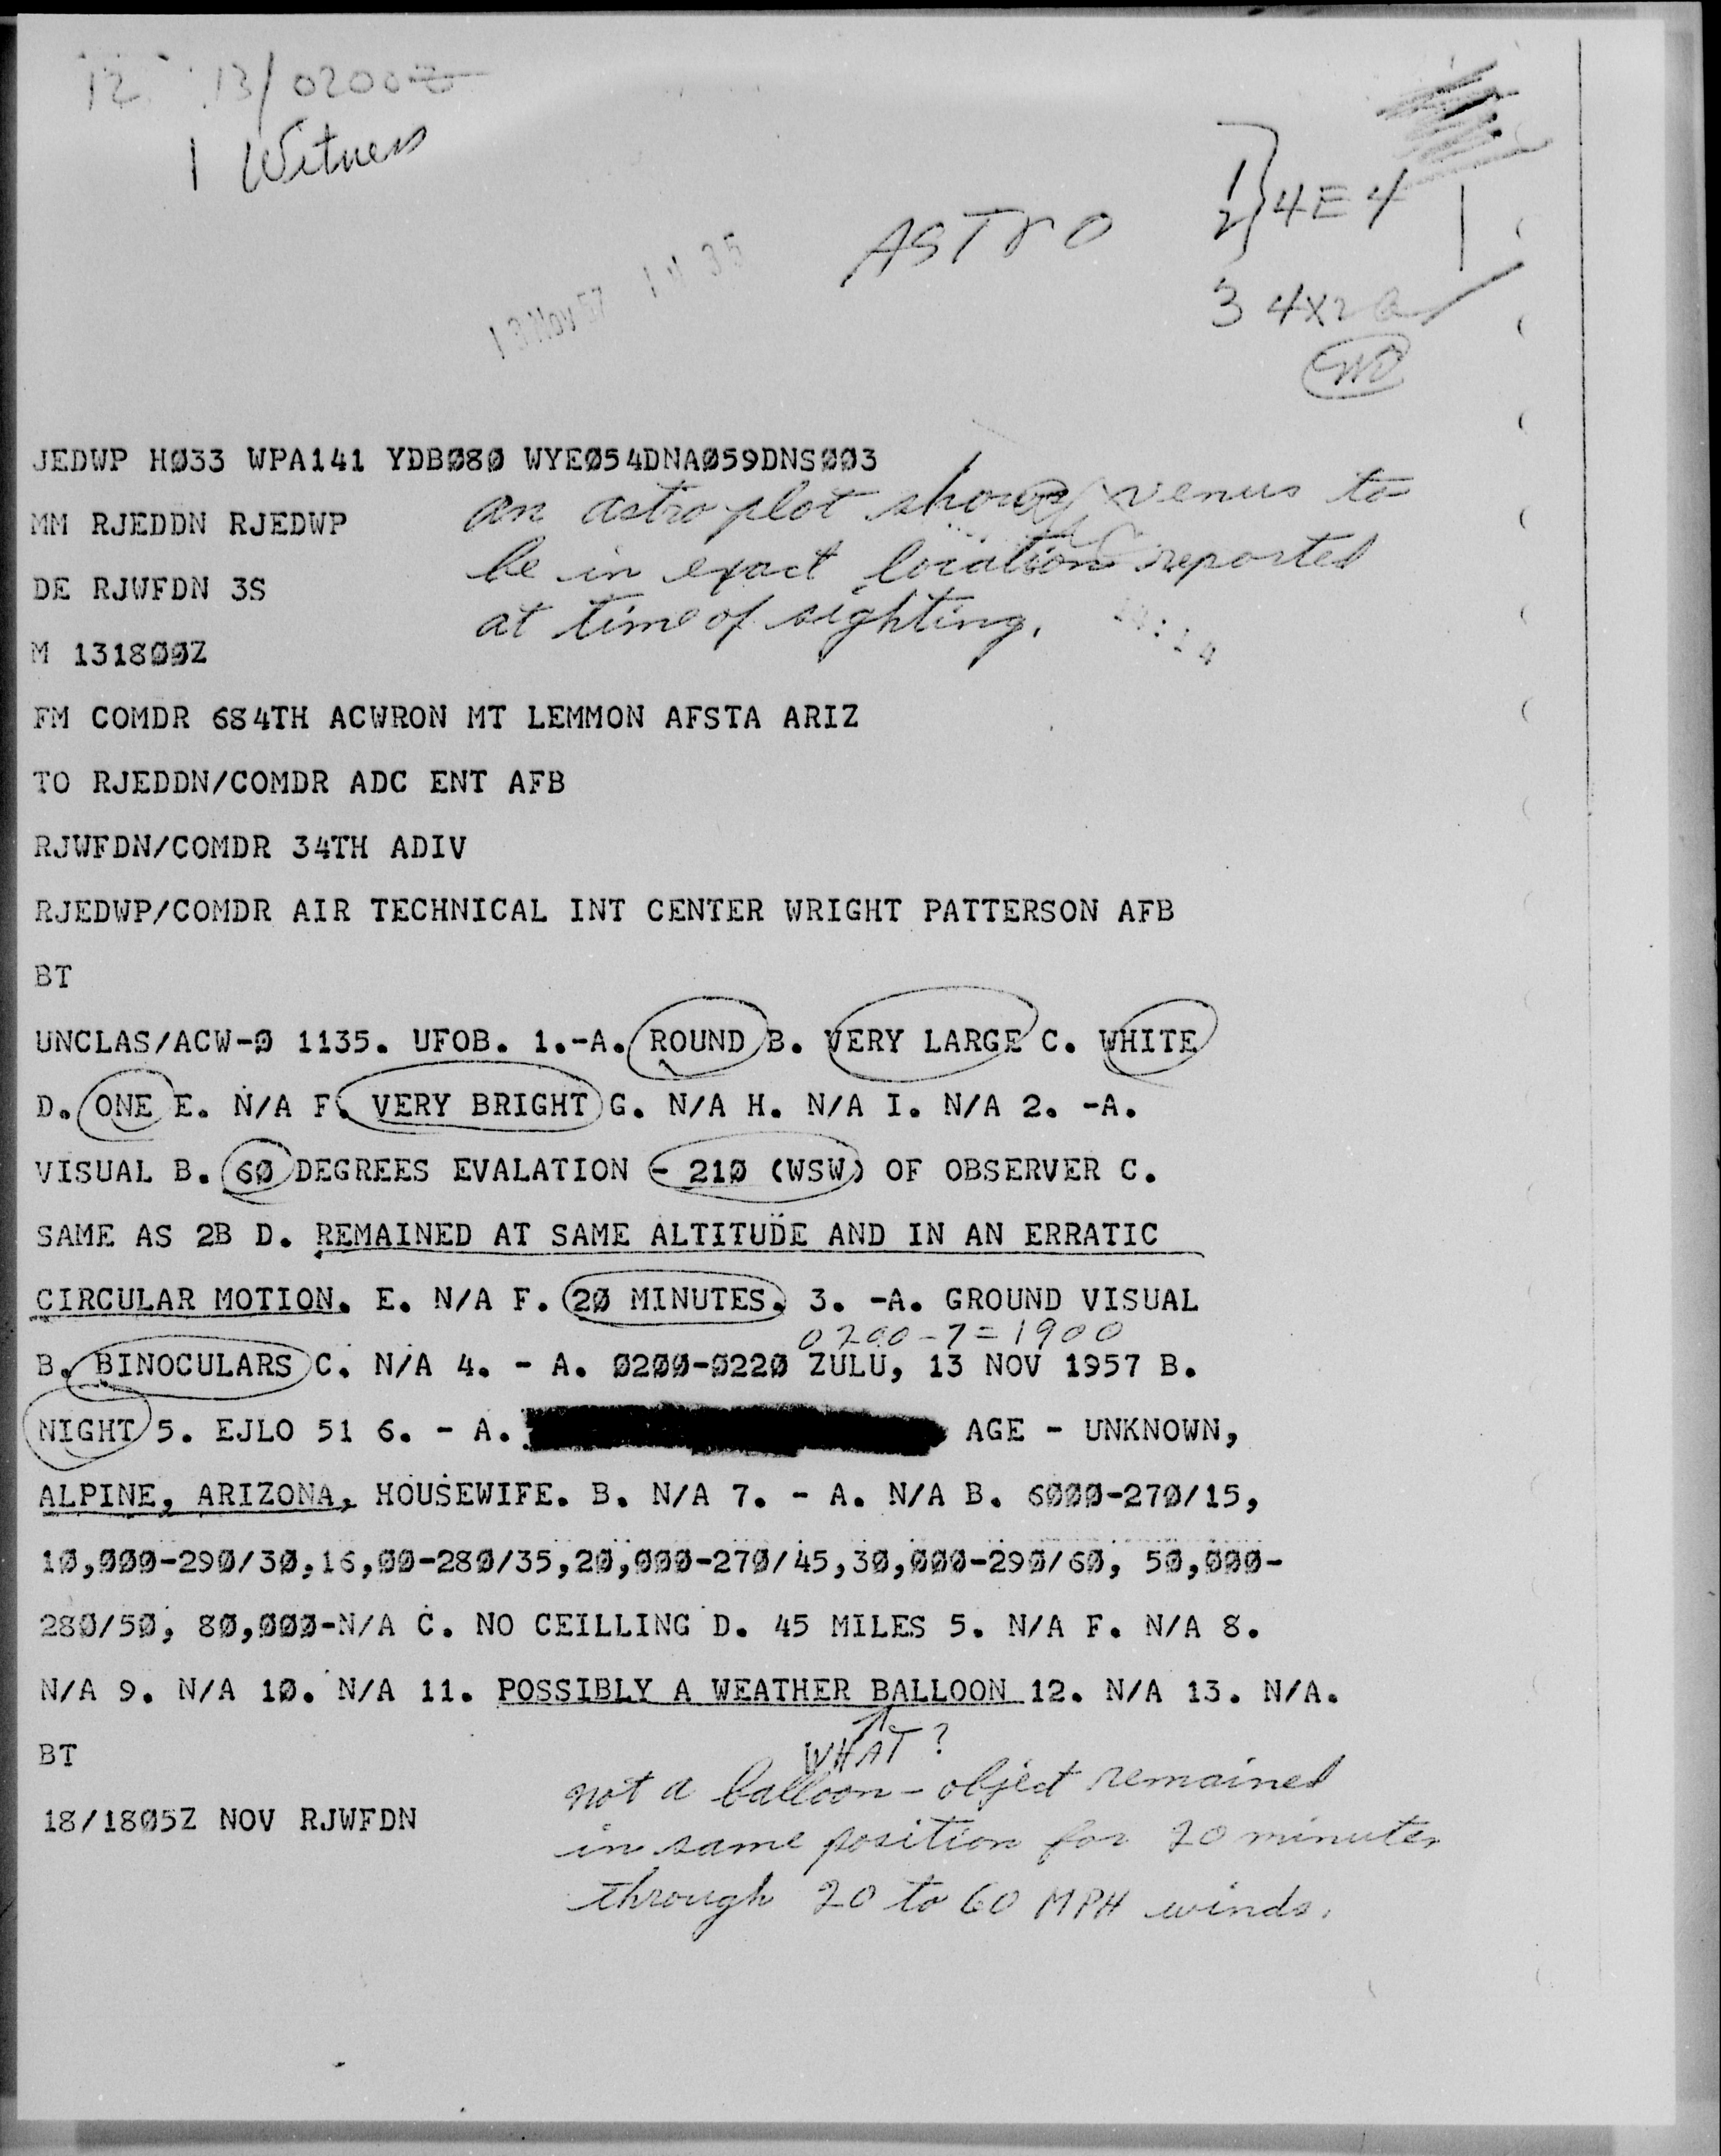 12 13/0200Z
1 Witness
ASTRO
1
2 } 4E4
3 4X2
13 Nov 57 14 35
JEDWP HØ33 WPA141 YDBØ8Ø WYEØ54DNAØ59DNSØØ3
an astro plot shows venus to
MM RJEDDN RJEDWP
be in exact location reported
DE RJWFDN 3S
at time of sighting.
M 1318ØØZ
FM COMDR 684TH ACWRON MT LEMMON AFSTA ARIZ
TO RJEDDN/COMDR ADC ENT AFB
RJWFDN/COMDR 34TH ADIV
RJEDWP/COMDR AIR TECHNICAL INT CENTER WRIGHT PATTERSON AFB
BT
UNCLAS/ACW-Ø 1135. UFOB. 1.-A. ROUND B. VERY LARGE C. WHITE
D. ONE E. N/A F. VERY BRIGHT G. N/A H. N/A I. N/A 2. -A.
VISUAL B. 6Ø DEGREES EVALATION - 21Ø (WSW) OF OBSERVER C.
SAME AS 2B D. REMAINED AT SAME ALTITUDE AND IN AN ERRATIC
CIRCULAR MOTION. E. N/A F. 2Ø MINUTES. 3. -A. GROUND VISUAL
0200-7=1900
B. BINOCULARS C. N/A 4. - A. Ø2ØØ-Ø22Ø ZULU, 13 NOV 1957 B.
NIGHT 5. EJLO 51 6. - A. AGE - UNKNOWN,
ALPINE, ARIZONA, HOUSEWIFE. B. N/A 7. - A. N/A B. 6ØØØ-27Ø/15,
1Ø,ØØØ-29Ø/3Ø,16,ØØ-28Ø/35,2Ø,ØØØ-27Ø/45,3Ø,ØØØ-29Ø/6Ø, 5Ø,ØØØ-
28Ø/5Ø, 8Ø,ØØØ-N/A C. NO CEILLING D. 45 MILES 5. N/A F. N/A 8.
N/A 9. N/A 1Ø. N/A 11. POSSIBLY A WEATHER BALLOON 12. N/A 13. N/A.
WHAT?
BT
not a balloon - object remained
18/18Ø5Z NOV RJWFDN
in same position for 20 minutes
through 20 to 60 MPH winds.